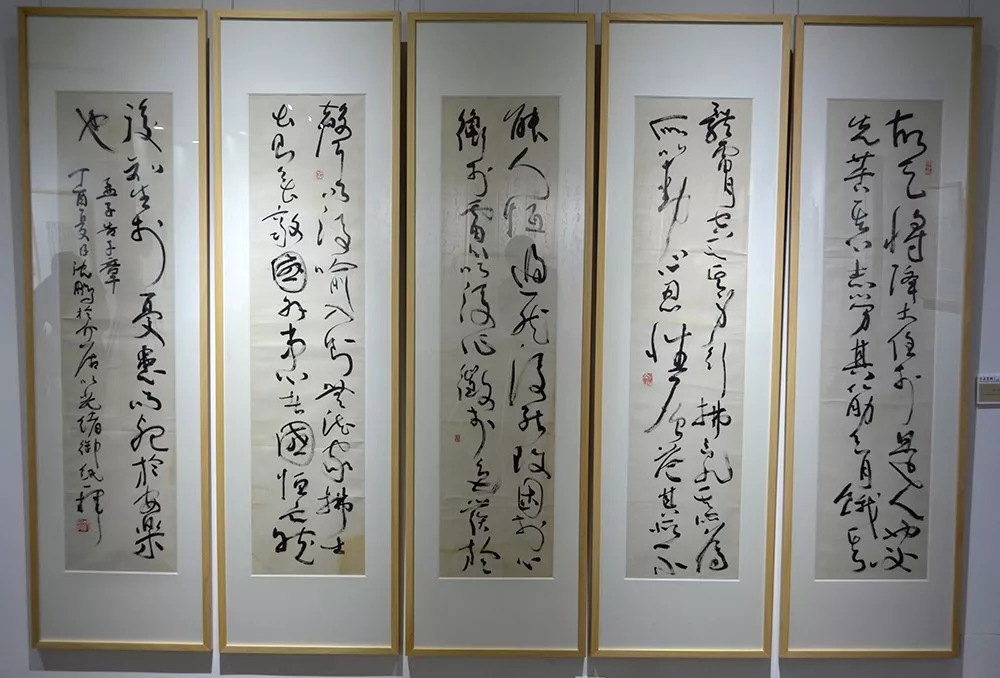 故天將降大任於是人也必
先苦其心志勞其筋骨餓其
體膚空乏其身行拂亂其所為
所以動心忍性曾益其所不
能人恒過然後能改困於心
衡於慮而後作徵於色發於
聲而後喻入則無法家拂士
出則無敵國外患者國恒亡然
後知生於憂患而死於安樂
也
孟子告子章
丁酉夏月沈鵬於介居以光緒御紙一揮